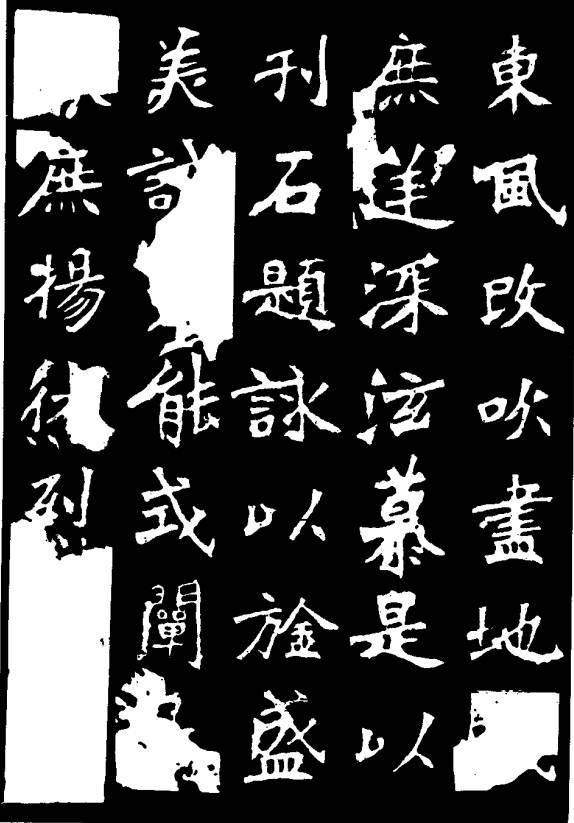 東風改吹盡地
庶深泫慕是以
刊石題詠以旌盛
美誠能式闡
庶揚休烈